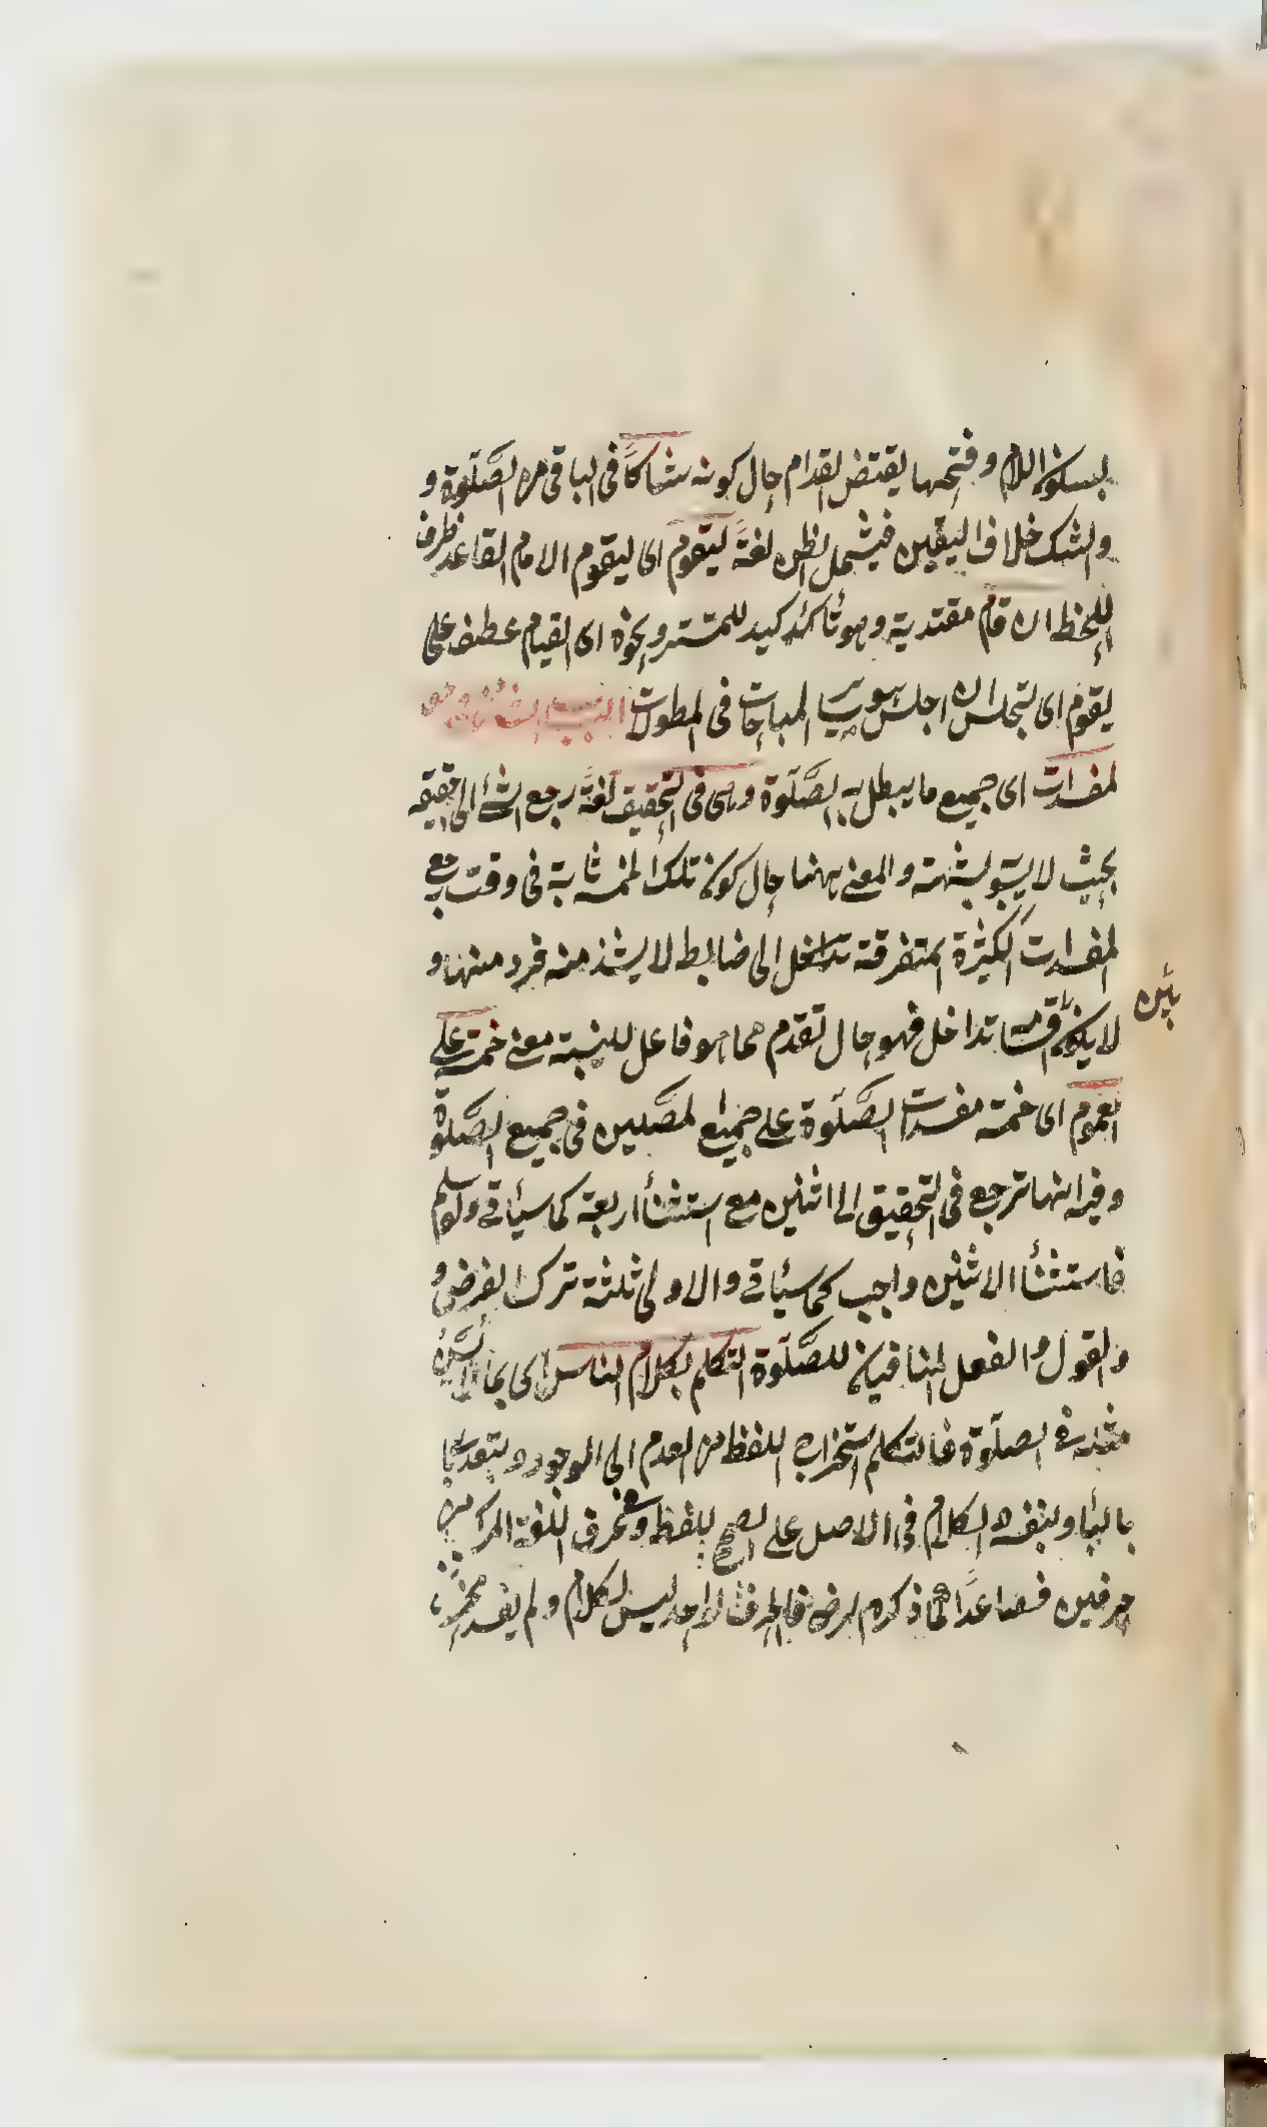 بسكون اللام وفتحها يقتضي القدام حال كونه شاكاً في الباقي من الصَّلٰوة و
والشك خلاف اليقين فيشمل الظن لغةً ليقوم اى ليقوم الامام القاعد ظرف
للحظ ان قام مقتديه وهو تأكيد للمستتر ونحوه اى القيام عطف على
يقوم اى لتجلس ان اجلس المباحات في المطولات الباب
المفسدات اى جميع ما يبطل به الصَّلٰوة وهى في التحقيق لغةً رجع الشئ الى حقيقته
بحيث لا يشوبه شبهة والمعنى ههنا حال كون تلك الخمسة ثابتة في وقت رجع
المفسدات الكثيرة المتفرقة تداخل الى ضابط لا يشذ منه فرد منها و
لا يكون اقسامه تداخل فهو حال تقدم مما هو فاعل للنسبة معنى خمسة على
بين
العموم اى خمسة مفسدات الصَّلٰوة على جميع المصَلين في جميع الصَّلٰوة
وفيه انها ترجع في التحقيق الى اثنين مع استثنأ اربعة كما سيأتى ولو سلم
فاستثنأ الاثنين واجب كما سيأتى والاولى ثلثة ترك الفرض و
والقول والفعل المنافيان للصَّلٰوة التكلم بكلام الناس اى بما
مثله في الصلٰوة فالتكلم استخراج اللفظ من العدم الى الوجود ويتعدى
بالبأ وبنفسه والكلام في الاصل على اللفظ وفي عرف اللغة المركب من
حرفين فصاعداً كما ذكره الرضى فالحرف الواحد ليس بكلام ولم يفسد